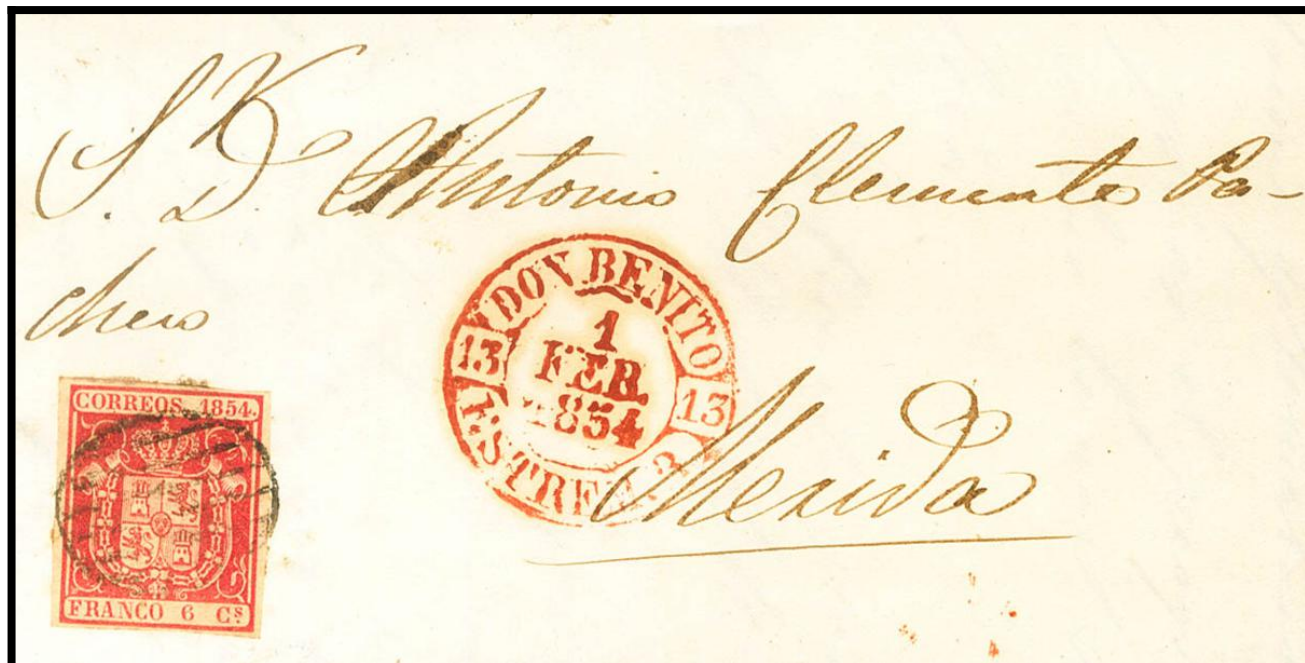 S. D. Antonio Clemente Pa-
checo
DON BENITO
13
1
FEB.
1854
13
Merida
CORREOS 1854.
FRANCO 6 Cs